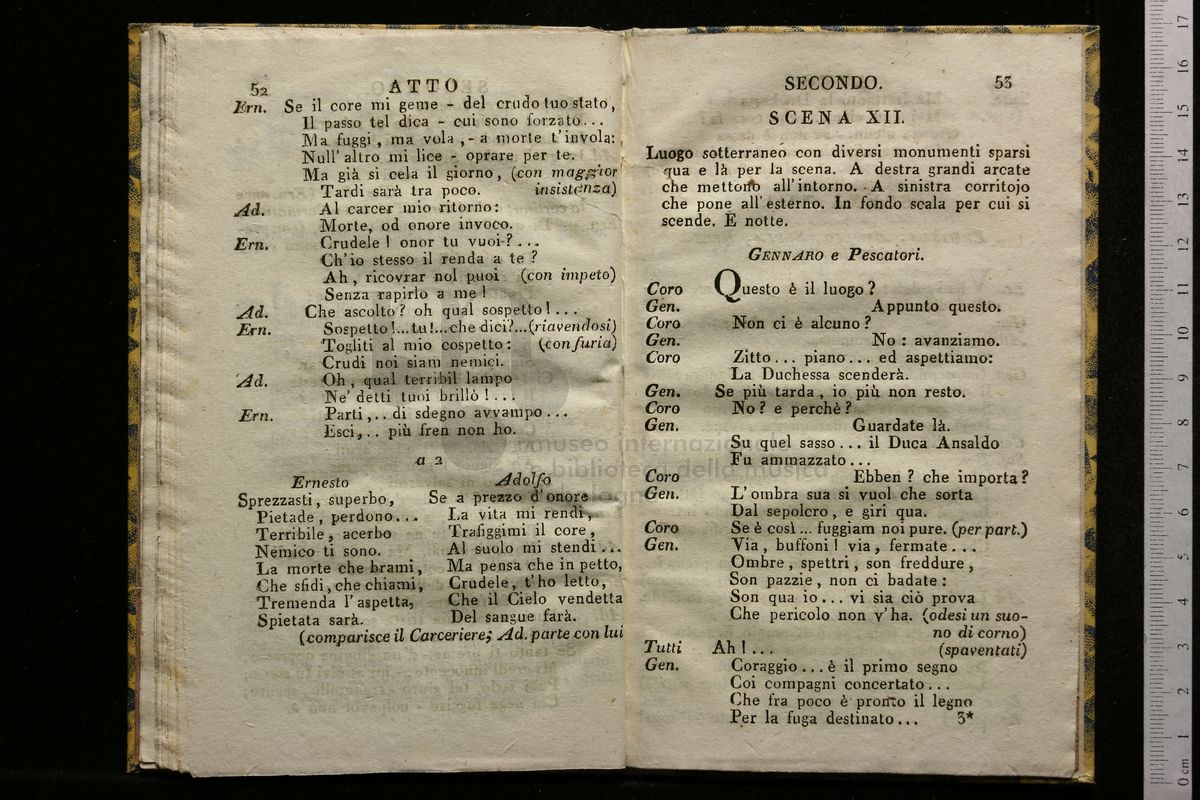 52 ATTO
Ern. Se il core mi geme - del crudo tuo stato,
Il passo tel dica - cui sono forzato...
Ma fuggi, ma vola, - a morte t'invola:
Null'altro mi lice - oprare per te.
Ma già si cela il giorno, (con maggior
Tardi sarà tra poco. insistenza)
Ad. Al carcer mio ritorno:
Morte, od onore invoco.
Ern. Crudele! onor tu vuoi?...
Ch'io stesso il renda a te?
Ah, ricovrar nol puoi (con impeto)
Senza rapirlo a me!
Ad. Che ascolto? oh qual sospetto!...
Ern. Sospetto!...tu!...che dici?...(riavendosi)
Togliti al mio cospetto: (con furia)
Crudi noi siam nemici.
Ad. Oh, qual terribil lampo
Ne' detti tuoi brillò!...
Ern. Parti,.. di sdegno avvampo...
Esci,.. più fren non ho.
a 2
Ernesto
Sprezzasti, superbo,
Pietade, perdono...
Terribile, acerbo
Nemico ti sono.
La morte che brami,
Che sfidi, che chiami,
Tremenda l'aspetta,
Spietata sarà.
Adolfo
Se a prezzo d'onore
La vita mi rendi,
Trafiggimi il core,
Al suolo mi stendi...
Ma pensa che in petto,
Crudele, t'ho letto,
Che il Cielo vendetta
Del sangue farà.
(comparisce il Carceriere; Ad. parte con lui
SECONDO. 53
SCENA XII.
Luogo sotterraneo con diversi monumenti sparsi
qua e là per la scena. A destra grandi arcate
che mettono all'intorno. A sinistra corritojo
che pone all'esterno. In fondo scala per cui si
scende. È notte.
GENNARO e Pescatori.
Coro Questo è il luogo?
Gen. Appunto questo.
Coro Non ci è alcuno?
Gen. No: avanziamo.
Coro Zitto... piano... ed aspettiamo:
La Duchessa scenderà.
Gen. Se più tarda, io più non resto.
Coro No? e perchè?
Gen. Guardate là.
Su quel sasso... il Duca Ansaldo
Fu ammazzato...
Coro Ebben? che importa?
Gen. L'ombra sua si vuol che sorta
Dal sepolcro, e giri qua.
Coro Se è così... fuggiam noi pure. (per part.)
Gen. Via, buffoni! via, fermate...
Ombre, spettri, son freddure,
Son pazzie, non ci badate:
Son qua io... vi sia ciò prova
Che pericolo non v'ha. (odesi un suo-
no di corno)
Tutti Ah!... (spaventati)
Gen. Coraggio...è il primo segno
Coi compagni concertato...
Che fra poco è pronto il legno
Per la fuga destinato... 3*
museo internazionale
biblioteca della musica
bologna
0 cm 1 2 3 4 5 6 7 8 9 10 11 12 13 14 15 16 17